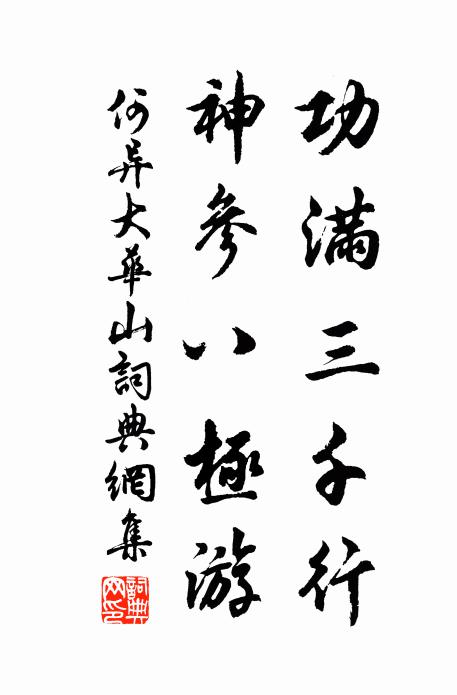 功滿三千行
神參八極游
何异大華山詞典網集
詞典網印